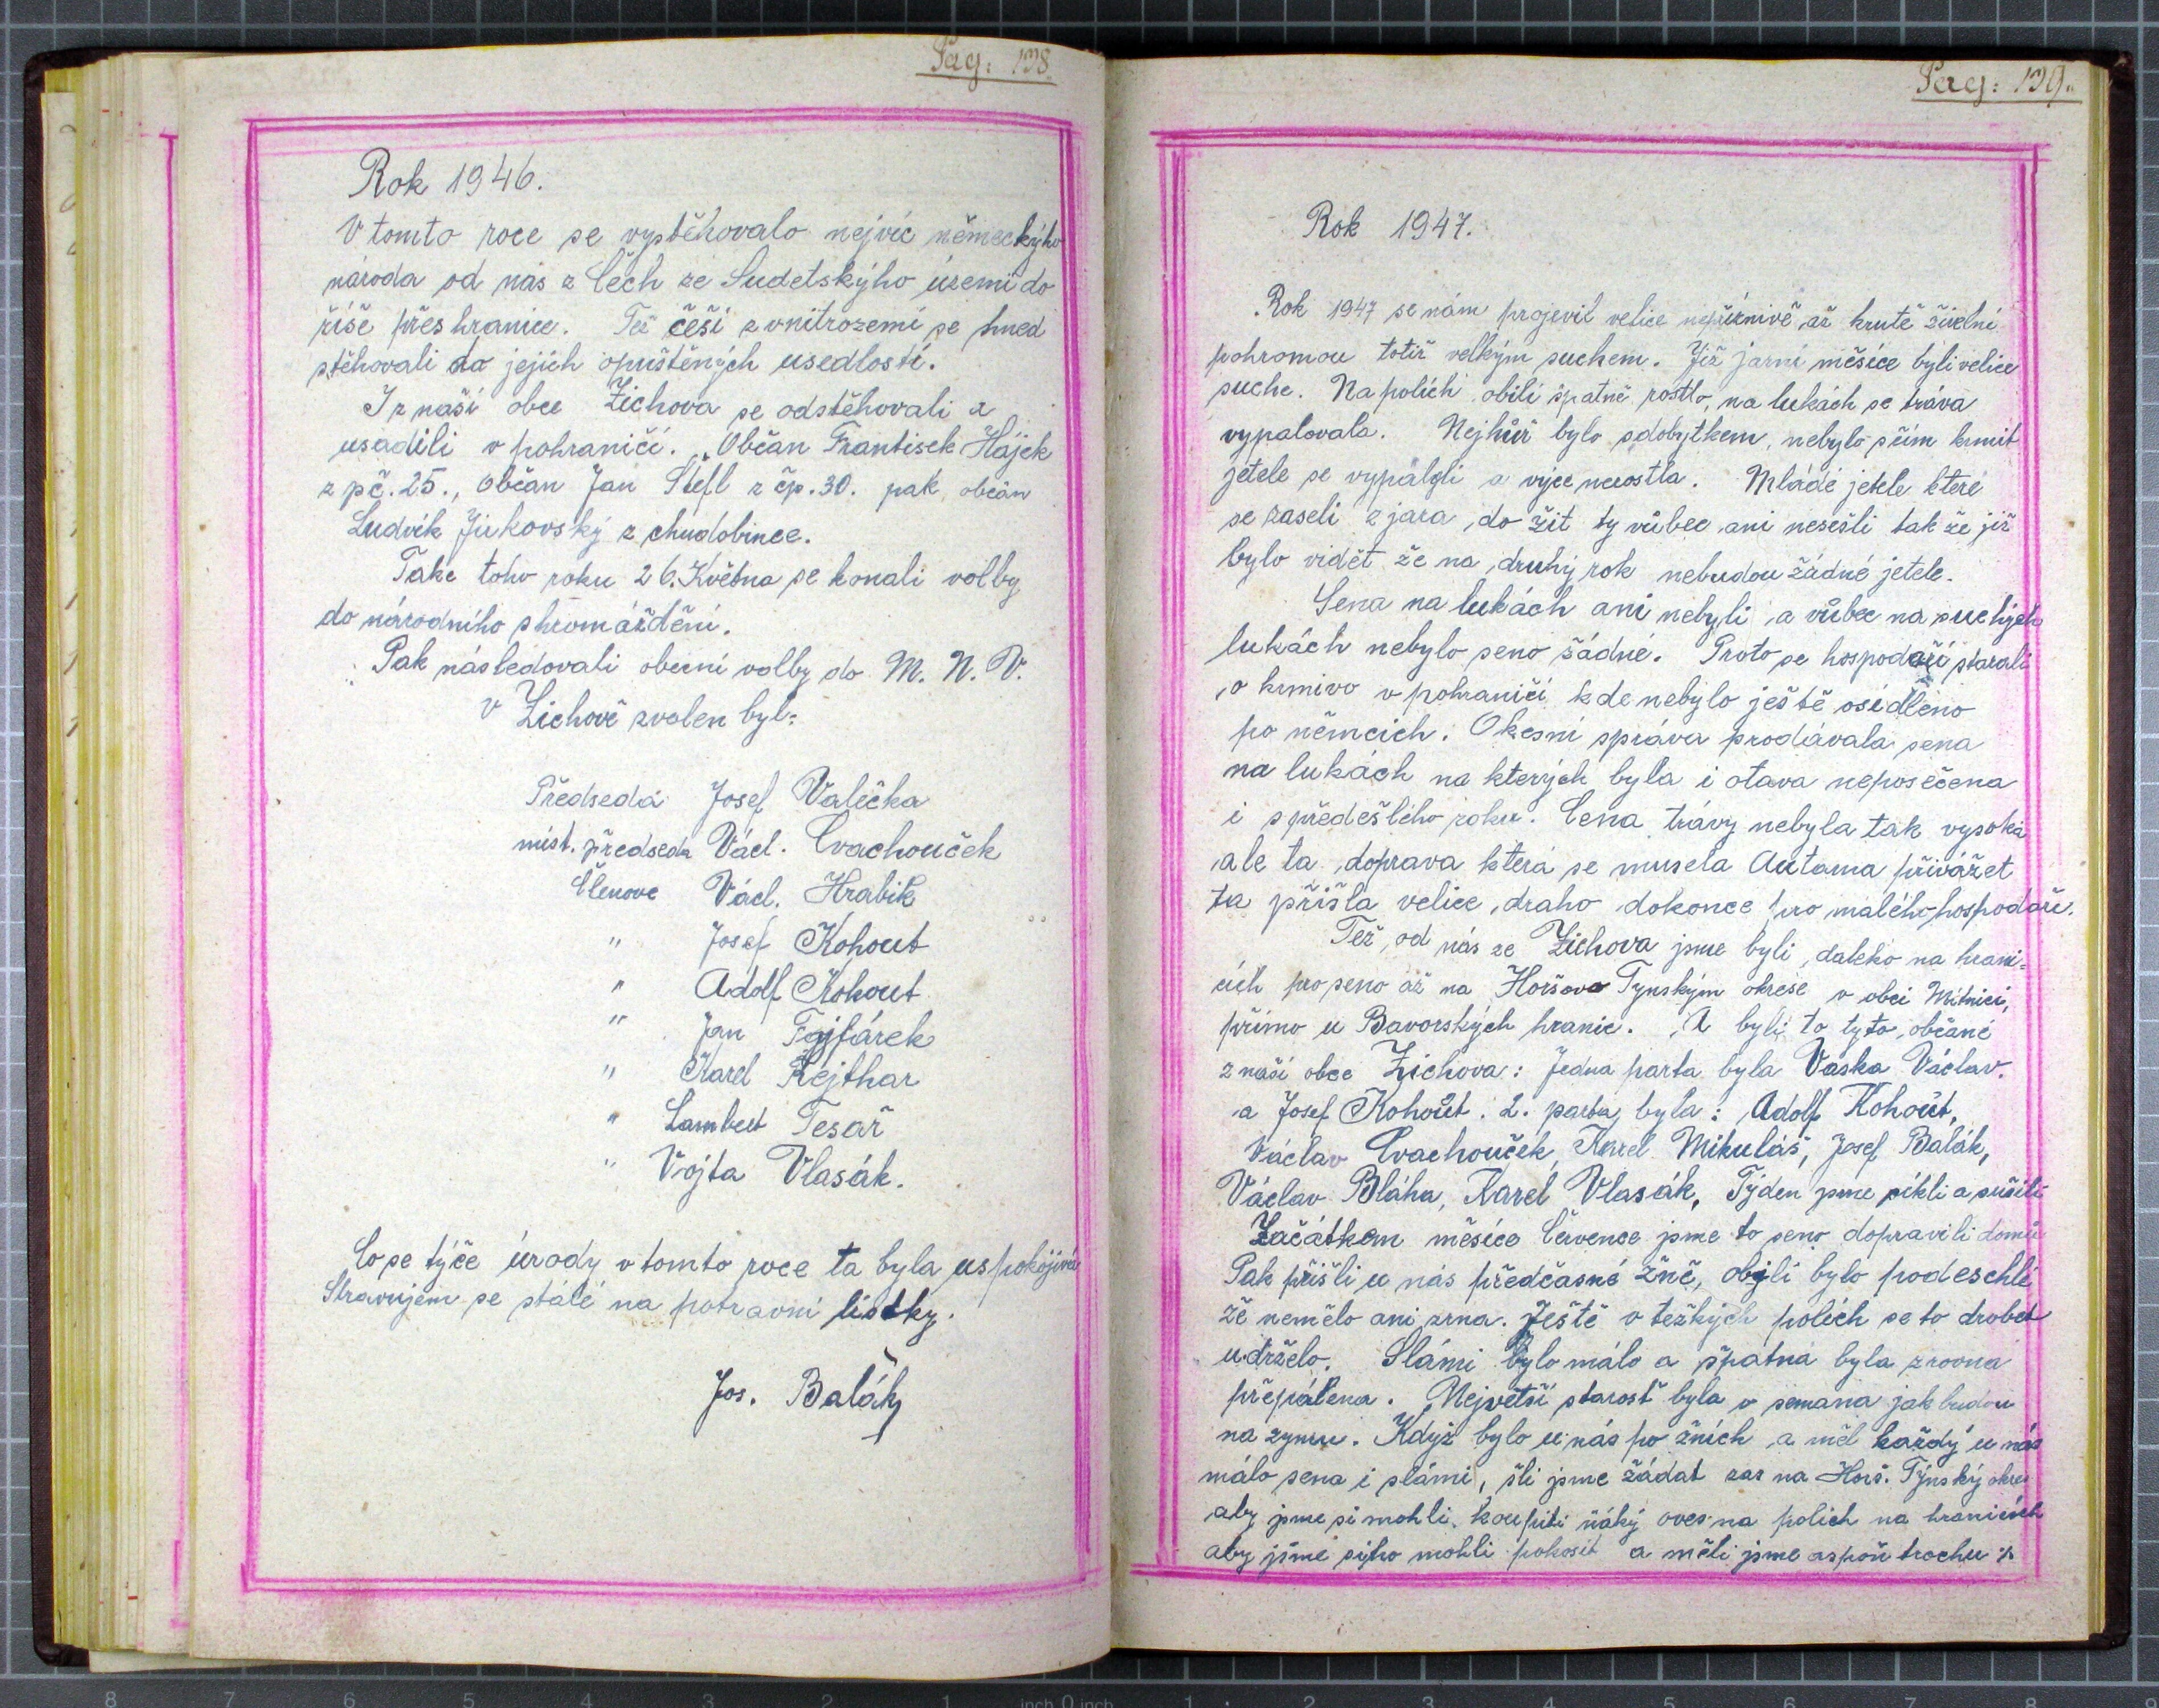 Pag: 138.
Rok 1946.
V tomto roce se vystěhovalo nejvíc německýho
národa od nás z Čech ze Sudetskýho území do
říše přes hranice. Též češi z vnitrozemí se hned
stěhovali do jejich opuštěných usedlostí.
I z naší obce Zichova se odstěhovali a
usadili v pohraničí. Občan Frantisek Hájek
z pč. 25., Občan Jan Štefl z čp. 30. pak občan
Ludvík Jirkovský z chudobince.
Take toho roku 26. Května se konali volby
do národního shromáždění.
Pak následovali obecní volby do M. N. V.
v Zichově zvolen byl:
Předseda Josef Valečka
míst. předseda Václ. Cvachouček
Členove Václ. Hrabík
" Josef Kohout
" Adolf Kohout
" Jan Fajfárek
" Karel Rejthar
" Lambert Tesař
" Vojta Vlasák.
Co se týče úrody v tomto roce ta byla uspokojivá
Stravujem se stálé na potravní lístky.
Jos. Balák
Pag: 139.
Rok 1947.
Rok 1947 se nám projevil velice nepříznivě až krutě živelní
pohromou totiž velkým suchem. Již jarní měsíce byli velice
suche. Na polích obilí špatně rostlo, na lukách se tráva
vypalovala. Nejhůř bylo sdobytkem, nebylo sčím krmit
jetele se vypályli a výce nerostla. Mládé jetele které
se zaseli z jara do žit ty vůbec ani nesešli tak že již
bylo vidět že na druhý rok nebudou žádné jetele.
Sena na lukách ani nebyli a vůbec na suchých
lukách nebylo seno žádné. Proto se hospodaří starali
o krmivo v pohraničí kde nebylo ještě osídleno
po němcích. Okesní správa prodávala sena
na lukách na kterých byla i otava neposečena
i spředešlého roku. Cena trávy nebyla tak vysoká
ale ta doprava která se musela Autama přivážet
ta přišla velice draho dokonce pro malého hospodáře.
Též od nás ze Zichova jsme byli daleko na hrani-
cích pro seno až na Horšovo Tynským okrese v obci Mítnici,
přímo u Bavorských hranic. A byli to tyto občané
z naší obce Zichova: Jedna parta byla Vaska Václav.
a Josef Kohout. 2. parta byla: Adolf Kohout,
Václav Cvachouček, Karel Mikuláš, Josef Balák,
Václav Bláha, Karel Vlasák, Týden jsme síkli a sušili
Začátkem měsíce Července jsme to seno dopravili domů
Pak přišli u nás předčasné žně, obilí bylo podeschlé
že nemělo ani zrna. Ještě v težkých polích se to drobet
udrželo. Slámi bylo málo a špatná byla zrovna
přepálena. Nejvetší starost byla o semana jak budou
na zymu. Když bylo u nás po žních a měl každý u nás
málo sena i slámi, šli jsme žádat zas na Horš. Týnský okres
aby jsme si mohli koupiti ňáký oves na polích na hranicích
aby jsme siho mohli pokosit a měli jsme aspoň trochu %